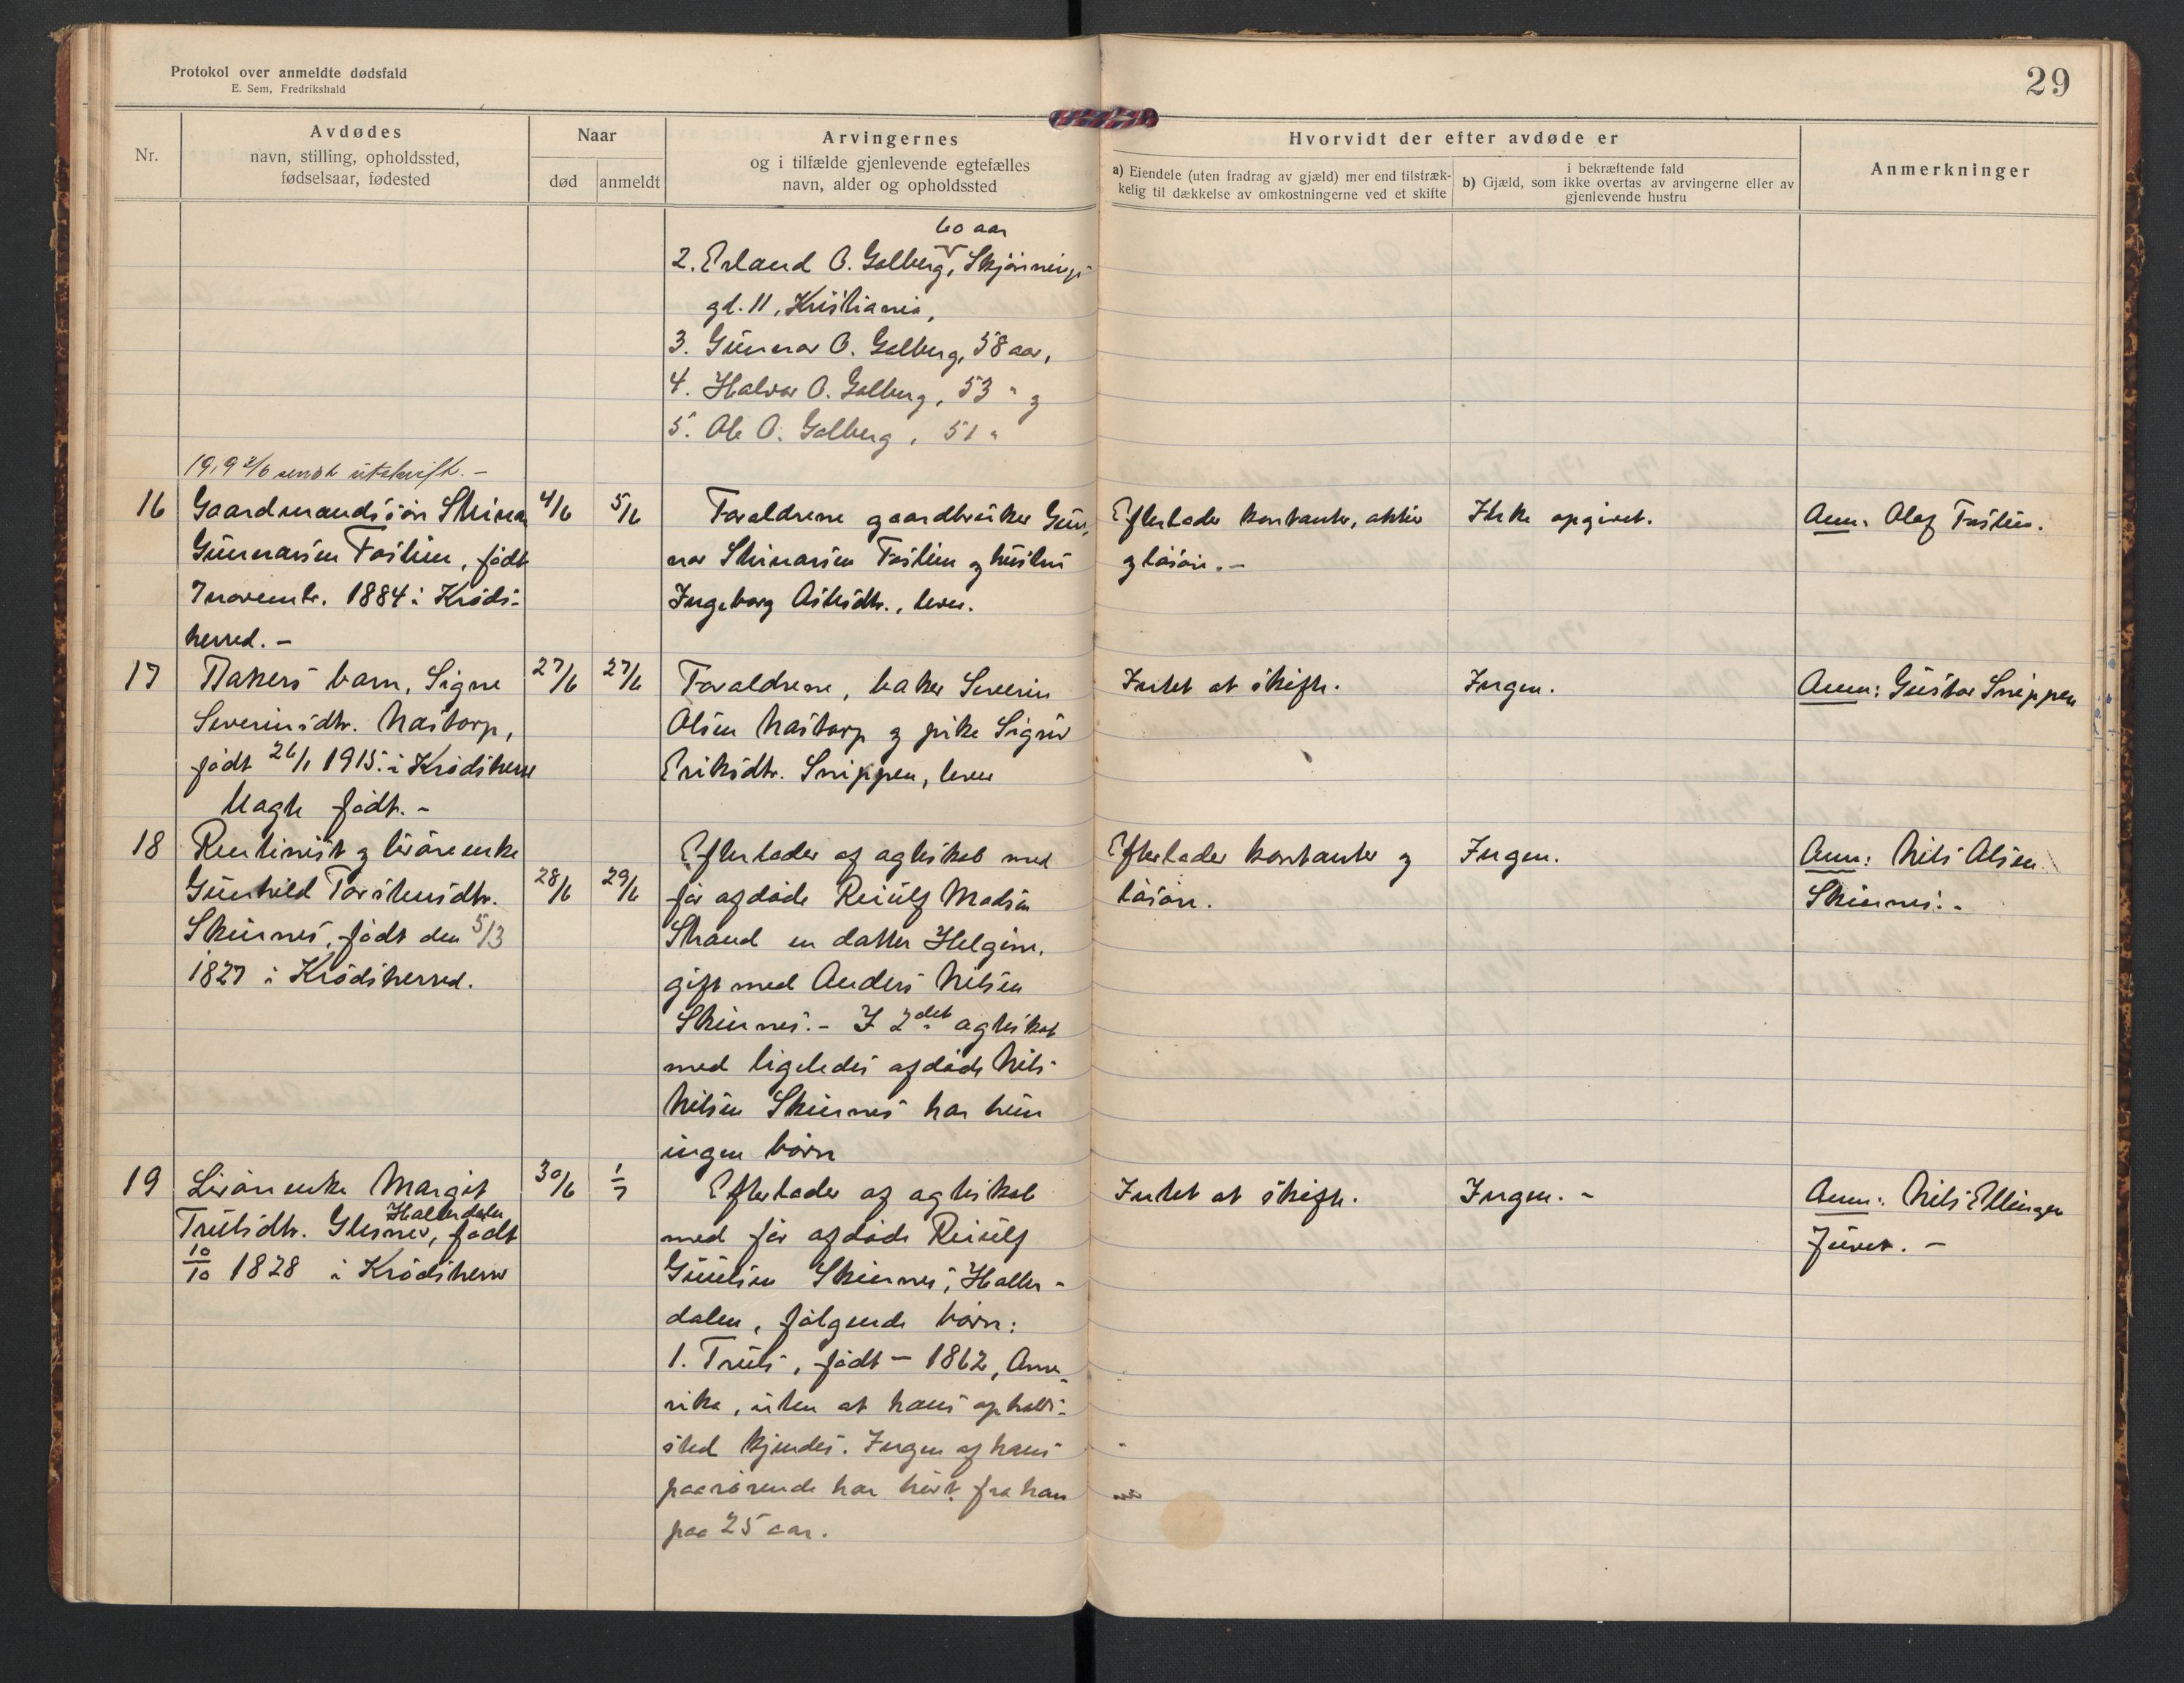 Protokol over anmeldte dødsfald
E. Sem, Fredrikshald
29
Nr.
Avdødes
navn, stilling, opholdssted,
fødselsaar, fødested
Naar
død
anmeldt
Arvingernes
og i tilfælde gjenlevende egtefælles
navn, alder og opholdssted
Hvorvidt der efter avdøde er
a) Eiendele (uten fradrag av gjæld) mer end tilstræk-
kelig til dækkelse av omkostningerne ved et skifte
i bekræftende fald
b) Gjæld, som ikke overtas av arvingerne eller av
gjenlevende hustru
Anmerkninger
60 aar
2. Erland O. Golberg, Skjønnings-
gd. 11, Kristiania,
3. Gunnar O. Golberg, 58 aar,
4. Halvor O. Golberg, 53 " og
5. Ole O. Golberg, 51 "
19, 9 2/6 sendt utskrift. -
16
Gaardmandssøn Steinar
Gunnarsen Foslien, født
7 novembr. 1884 i Kröds-
herred. -
4/6
5/6
Forældrene gaardbruker Gun-
nar Steinarsen Foslien og hustru
Ingeborg Aslesdtr., lever.
Efterlader kontanter, aktier
og løsøre. -
Ikke opgivet.
Anm. Olaf Foslien.
17
Bakers barn, Signe
Severinsdtr. Nastorp,
født 26/1 1915 i Krödsherre
Uagte født. -
27/6
27/6
Forældrene, baker Severin
Olsen Nastorp og pike Sigrid
Eriksdtr. Snippen, lever
Intet at skifte.
Ingen.
Anm: Gustav Snippen
18
Rentinist og livøreenke
Gunhild Torstensdtr.
Skinnes, født den 5/3
1827 i Krödsherred.
28/6
29/6
Efterlader af ægteskab med
før afdøde Reiulf Madsen
Strand en datter Helgine,
gift med Anders Nilsen
Skinnes. - I 2det ægteskab
med ligeledes afdøde Nils
Nilsen Skinnes har hun
ingen børn
Efterlader kontanter og
løsøre.
Ingen.
Anm: Nils Olsen
Skinnes. -
19
Livøreenke Margit
Trulsdtr. Glesne, født
Hallerdalen
10/10 1828 i Krödsherre
30/6
1/7
Efterlader af ægteskab
med før afdøde Reiulf
Guulsen Skinnes, Haller-
dalen, følgende børn:
1. Truls, født - 1862, Ame-
rika, uten at hans opholds-
sted kjendes. Ingen af hans
paarørende har hørt fra ham
paa 25 aar.
Intet at skifte.
Ingen. -
Anm: Nils Ellingen
Juvet. -